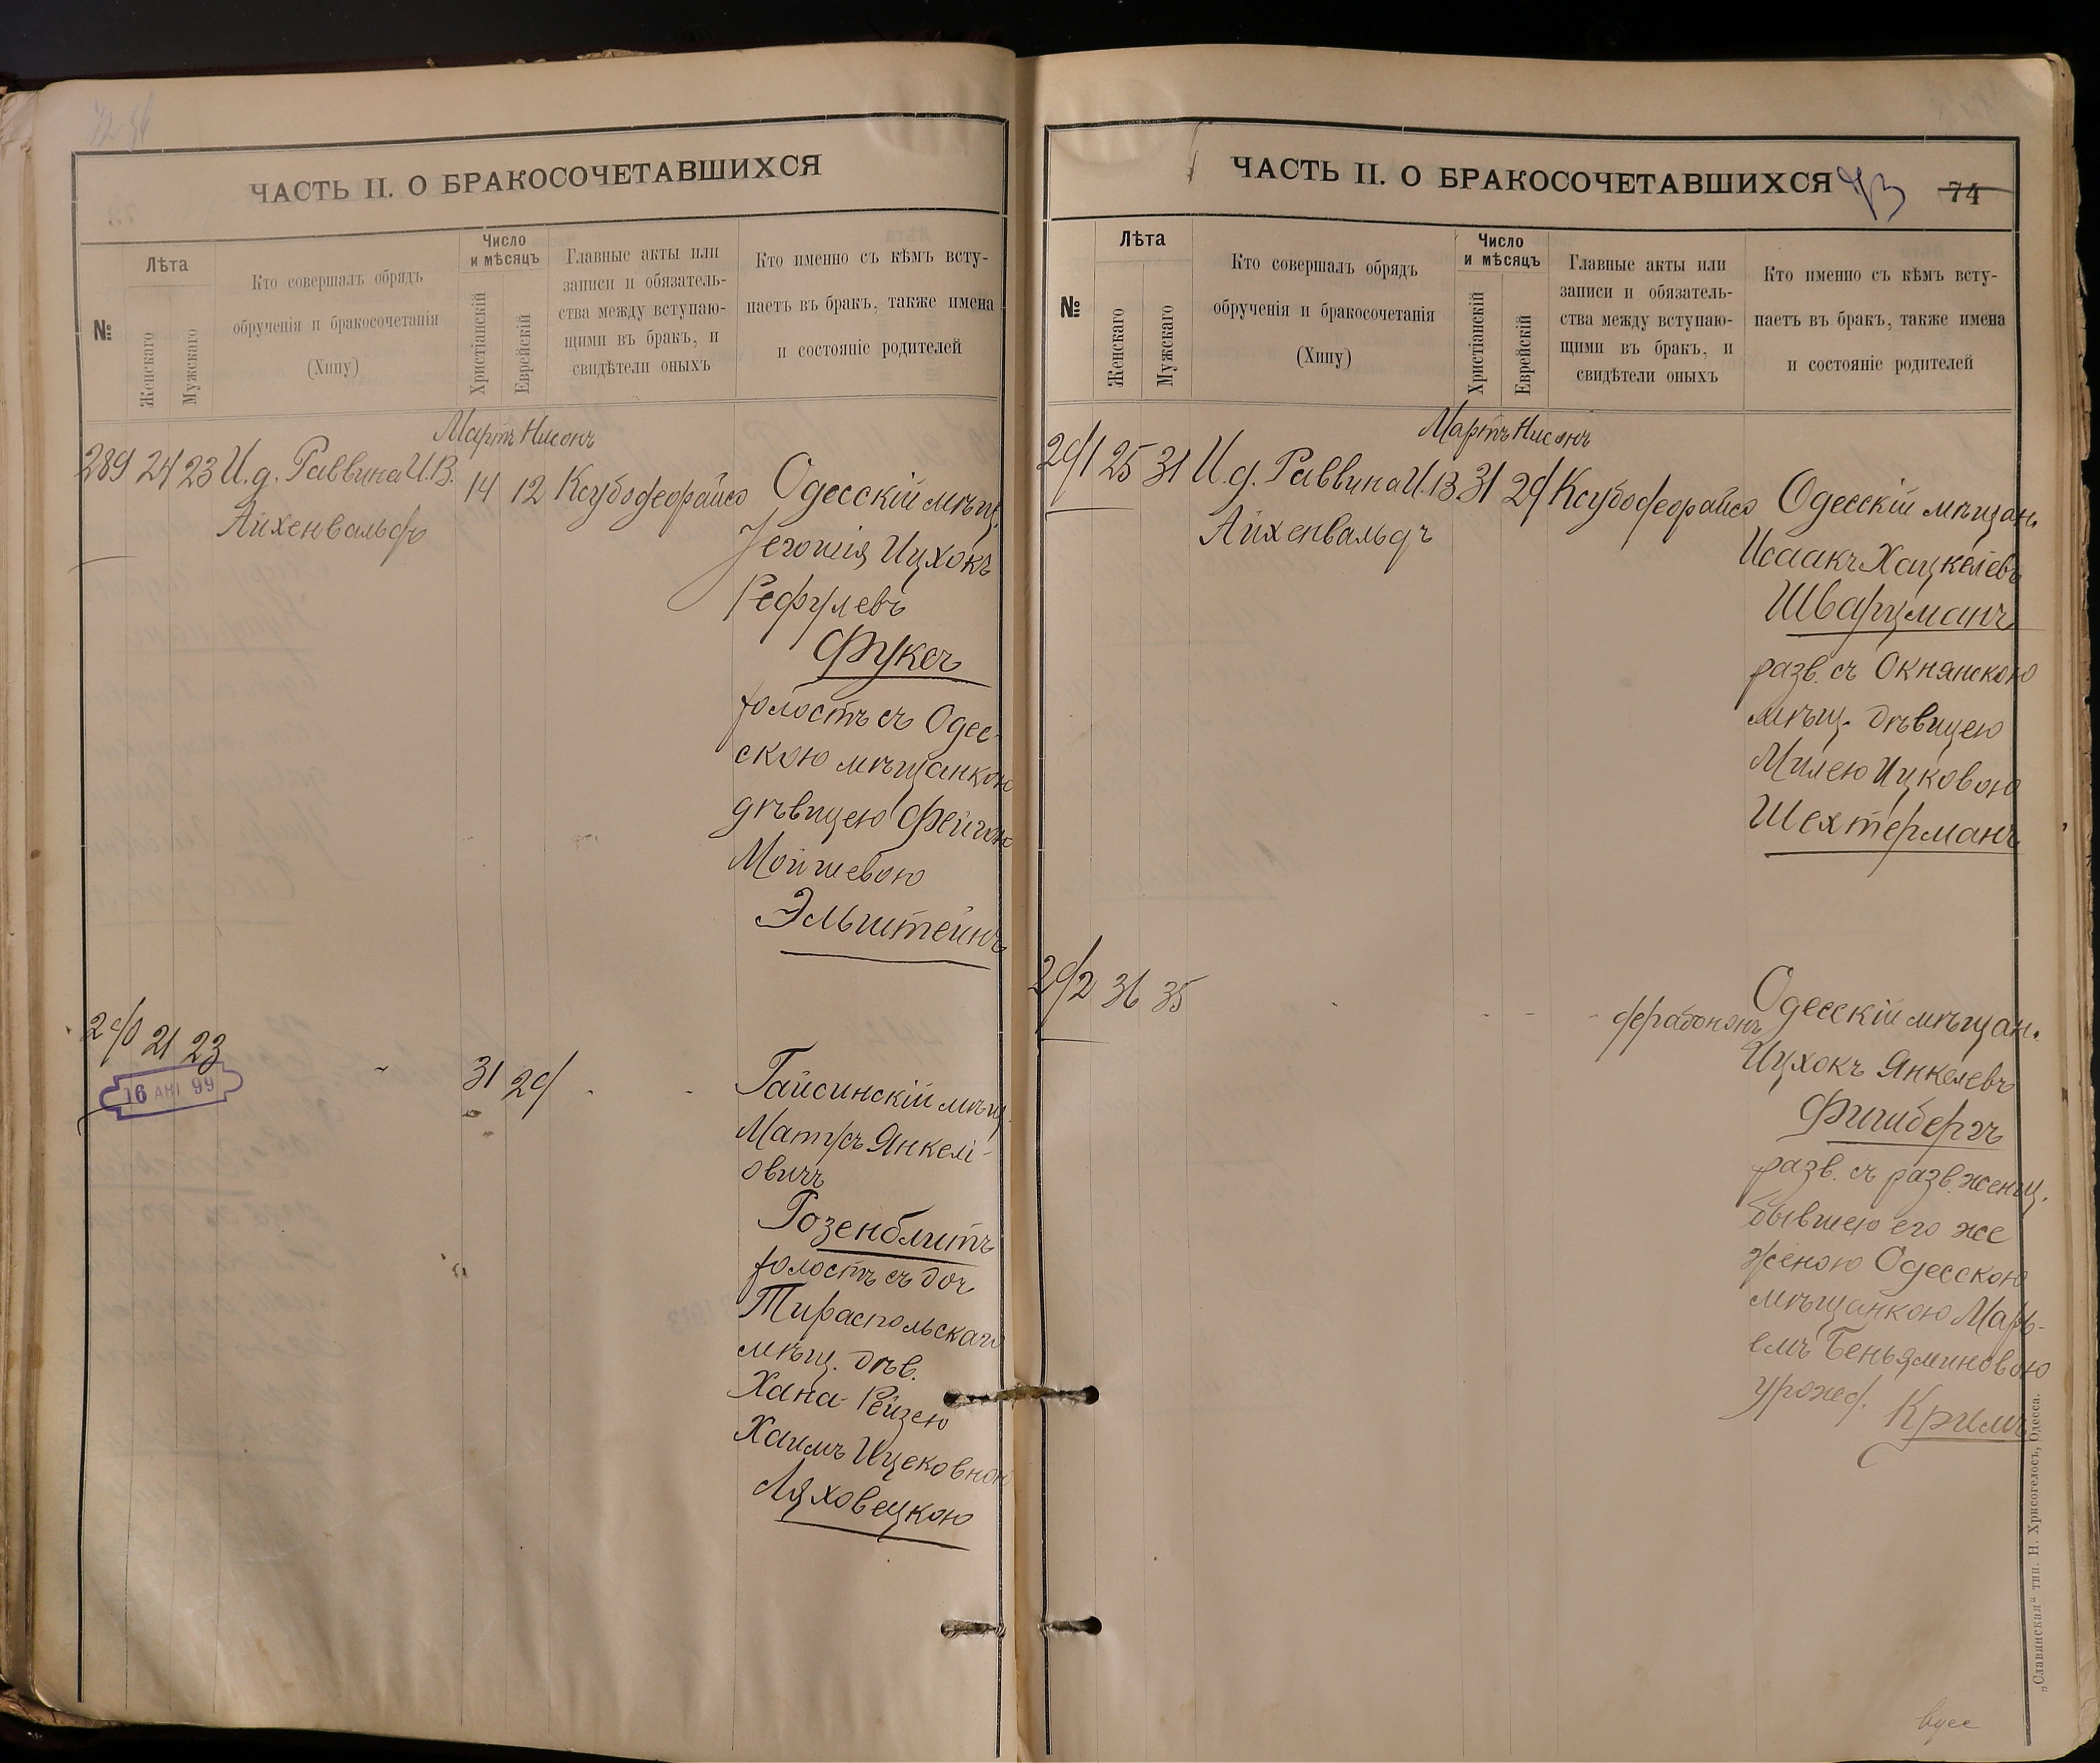 ЧАСТЬ II. О БРАКОСОЧЕТАВШИХСЯ
№
Лѣта
Женскаго
Мужскаго
Кто совершалъ обрядъ
обрученія и бракосочетанія
(Хипу)
Число
и мѣсяцъ
Христіанскій
Еврейскій
Главные акты или
записи и обязатель-
ства между вступаю-
щими въ бракъ, и
свидѣтели оныхъ
Кто именно съ кѣмъ всту-
паетъ въ бракъ, также имена
и состояніе родителей
Мартъ Нисонъ
289 24 23 И.д. Раввина И.В. 14 12 Ксубо деорайсо Одесскій мѣщ.
Айхенвальдъ
Іегошія Ицхокъ
Рефулевъ
Фуксъ
холостъ съ Одес-
скою мѣщанкою
дѣвицею Фейгою
Мойшевою
Эльштейнъ
290 21 23 31 29 Гайсинскій мѣщ.
16 АПР 99
Матусъ Янкелі-
овичъ
Розенблитъ
холостъ съ доч.
Тираспольскаго
мѣщ. дѣв.
Хана-Рейзею
Хаимъ Ицековною
Ляховецкою
ЧАСТЬ II. О БРАКОСОЧЕТАВШИХСЯ 73 74
№
Лѣта
Женскаго
Мужскаго
Кто совершалъ обрядъ
обрученія и бракосочетанія
(Хипу)
Число
и мѣсяцъ
Христіанскій
Еврейскій
Главные акты или
записи и обязатель-
ства между вступаю-
щими въ бракъ, и
свидѣтели оныхъ
Кто именно съ кѣмъ всту-
паетъ въ бракъ, также имена
и состояніе родителей
Мартъ Нисонъ
291 25 31 И.д. Раввина И.В. 31 29 Ксубо деорайсо Одесскій мѣщан.
Айхенвальдъ
Исаакъ Хацкелевъ
Шварцманъ
разв. съ Окнянскою
мѣщ. дѣвицею
Милею Ицковою
Шехтерманъ
292 36 35 дерабононъ Одесскій мѣщан.
Ицхокъ Янкелевъ
Фишбергъ
разв. съ разв. женщ.
бывшею его же
женою Одесскою
мѣщанкою Марь-
емъ Беньяминовою
урожд. Кримъ
„Славянская“ тип. Н. Хрисогелосъ, Одесса.